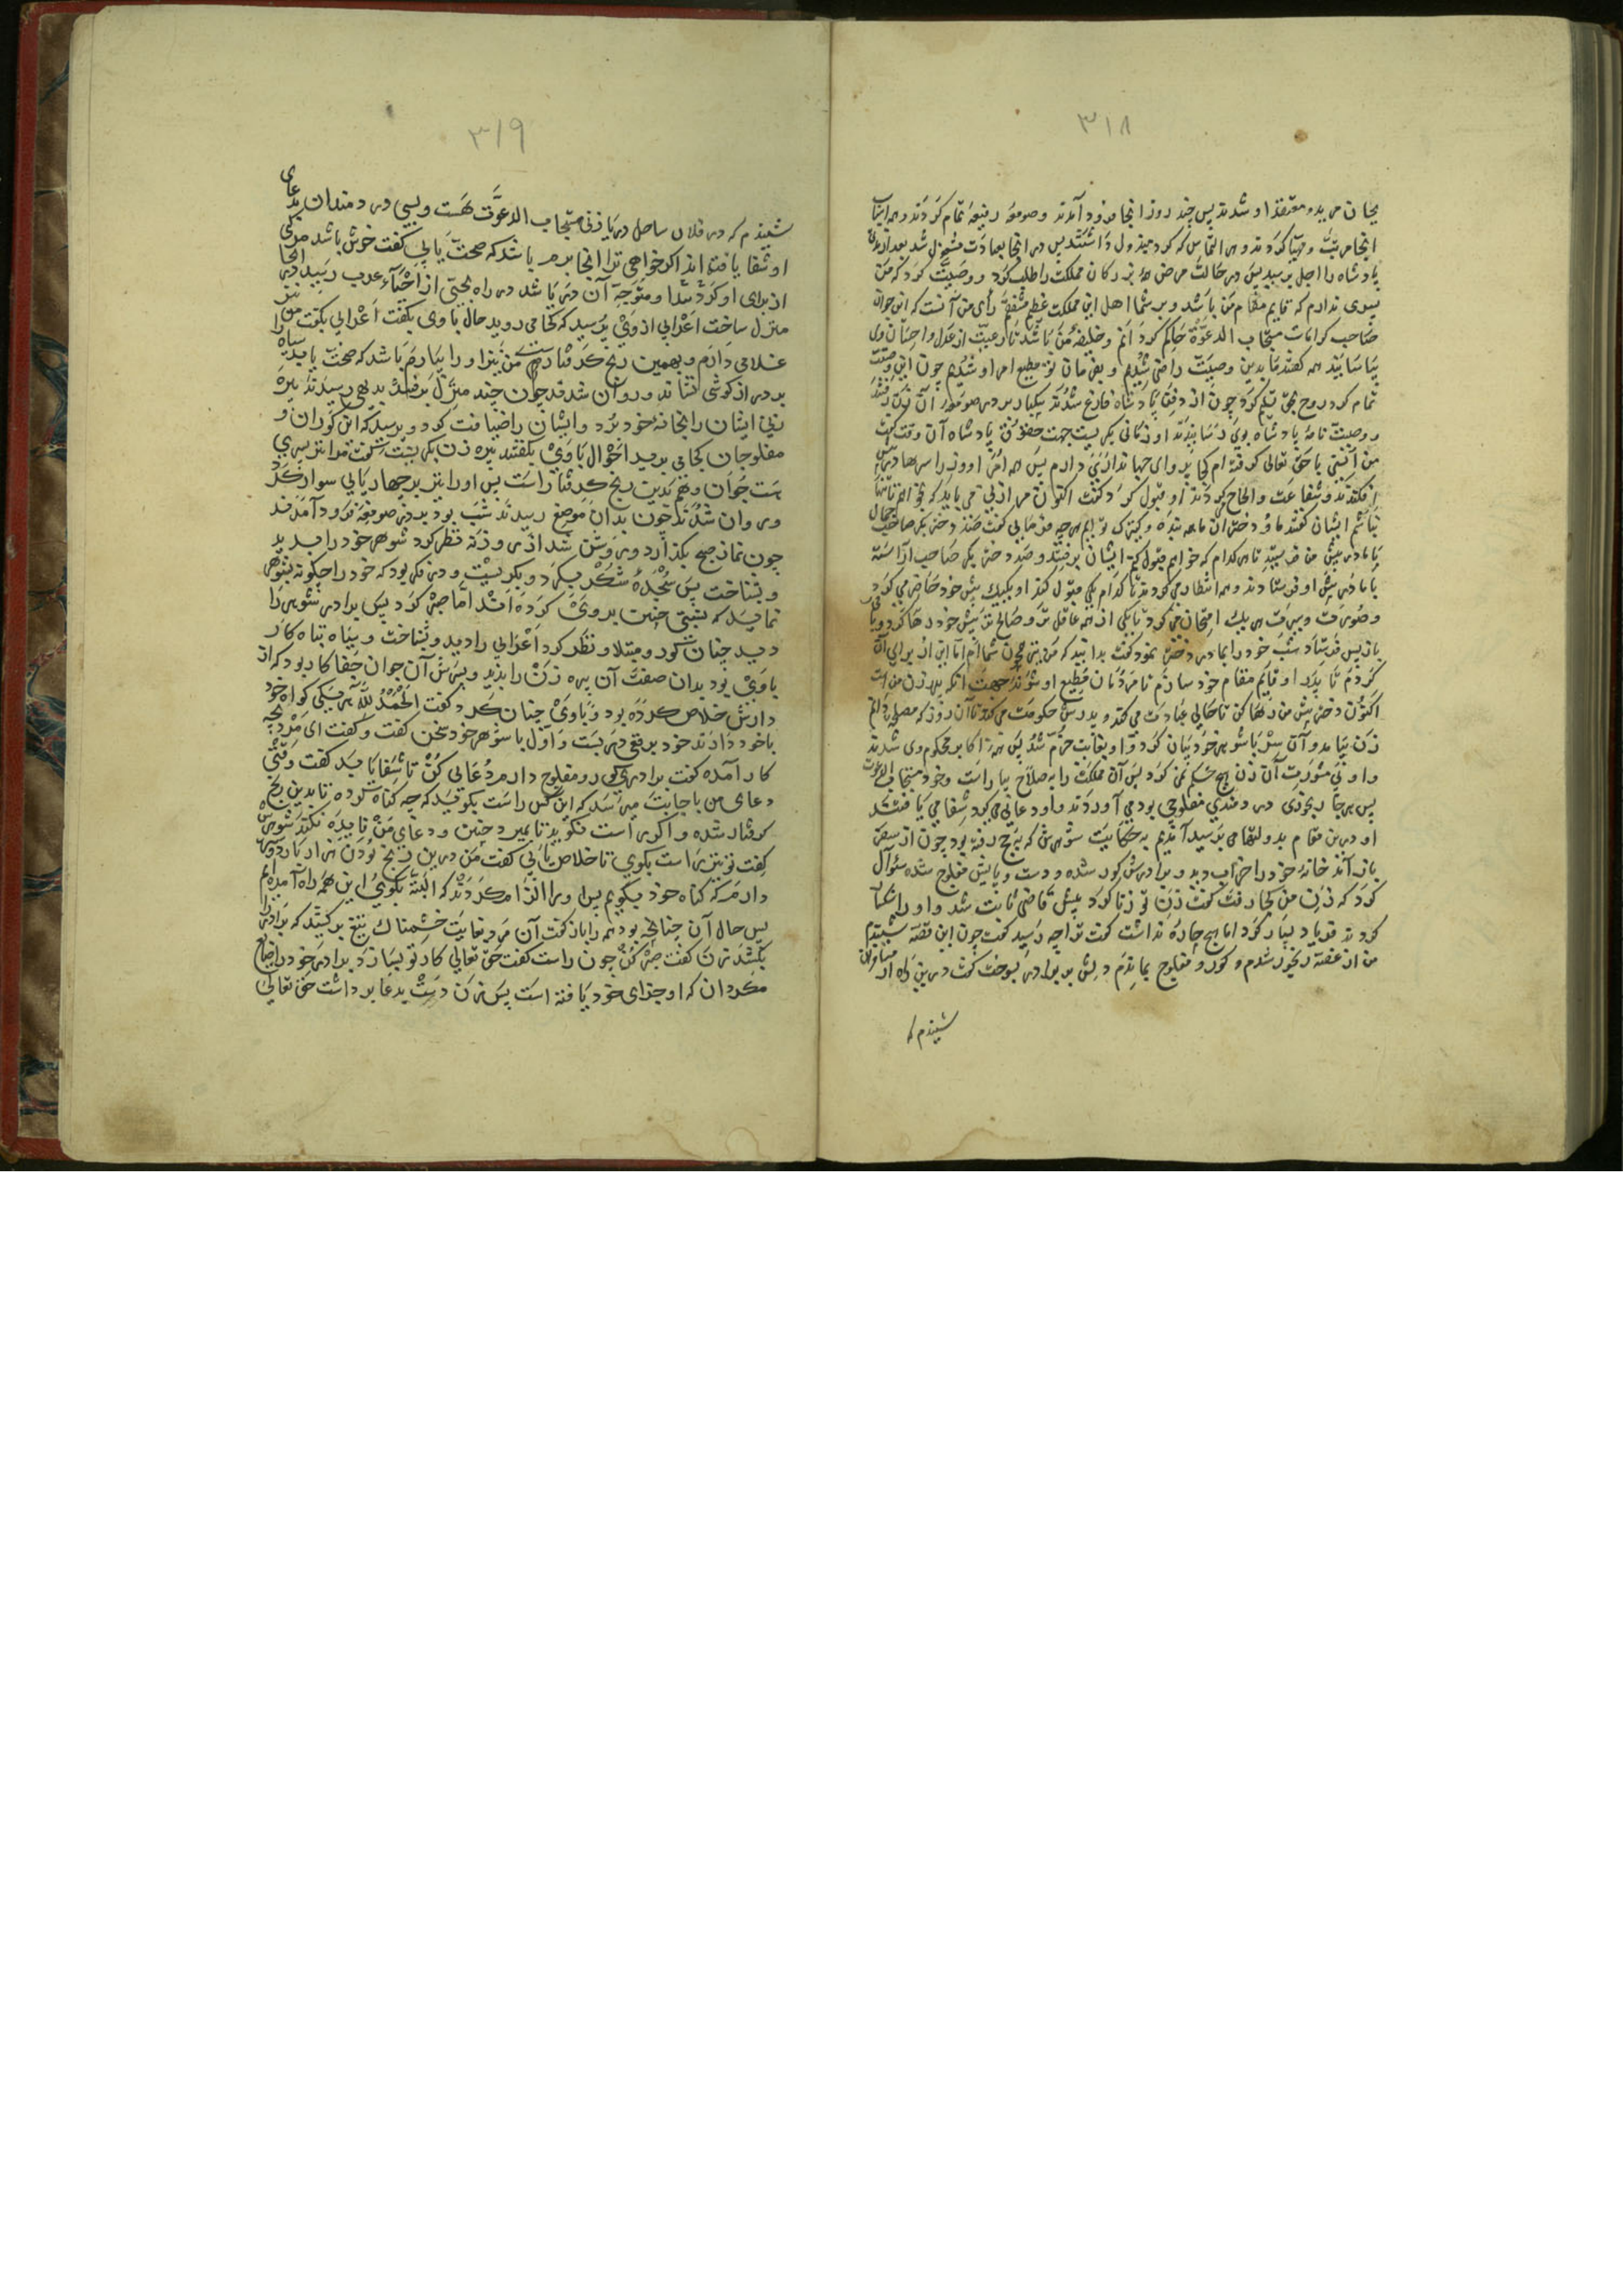 ۳۱۸
بجان مرید و معتقد او شدند پس چند روز انجا فرود آمدند و صومعهٔ رفیعه تمام کردند و همه اسباب
انجا مرتب و مهیا کردند و هر التماس که کرد مبذول داشتند پس در انجا بعبادت مشغول شد بعد از مدتی
پادشاه را اجل برسید پس در حالت مرض همه بزرکان مملکت را طلب کرد و وصیت کرد که من
پسری ندارم که قایم مقام من باشد و بر شما اهل این مملکت عظیم مشفقم رأی من آنست که این جوان
صاحب کرامات مستجاب الدعوة حاکم کردانم و خلیفهٔ من باشد تا رعیت از عدل و احسان وی
بیاسایند همه کفتند ما بدین وصیت راضی شدیم و بفرمان تو مطیع امر او شدیم چون این وصیت
تمام کرد روح بحق تسلیم کرد چون از دفن پادشاه فارغ شدند یکبار بر در صومعهٔ آن زن رفتند
و وصیت نامهٔ پادشاه بوی رسانیدند او زمانی بکریست جهت حقوق پادشاه آن وقت کفت
من آنستی با حق تعالی کرفته ام کجا پروای جهانداری دارم پس همه امرا و وزرا سرها در پایش
افکندند و شفاعت و الحاح کردند او قبول کرد کفت اکنون مرا زنی می باید که بخواهم تا تنها
نباشم ایشان کفتند ما و دختران ما همه بنده و کنیزک تو ایم هر چه فرمایی کفت صد دختر بکر صاحب جمال
با مادر پیش من فرستید تا هر کدام که خواهم قبول کنم ایشان برفتند و صد دختر بکر صاحب آراسته
با مادر پیش او فرستادند و همه انتظار می کردند تا کدام یکی قبول کند او یکیک پیش خود حاضر می کرد
و صورت و سیرت هر یک امتحان می کرد تا یکی از همه عاقل تر و صالح تر پیش خود رها کرد و باقی
باز پس فرستاد شب خود را بمادر و دختر نمود کفت بدانید که من نیز همچون شما ام اما این از برای آن
کردم تا یکی را قایم مقام خود سازم تا مردمان مطیع او شوند جهت آنکه پدر زن من است
اکنون دختر پیش من رها کن تا حالی عبادت می کند و پدرش حکومت می کند تا آن روز که مصلحت دانم
زن بیامد و آن سر با شوهر خود بیان کرد و او بغایت خرم شد پس همه اکابر محکوم وی شدند
و او بی مشورت آن زن هیچ حکم نمی کرد پس آن مملکت را به صلاح بیاراست و خود مستجاب الدعوت
پس هر جا رنجوری در دمندی مفلوجی بود می آوردند و او دعایی می کرد شفا می یافتند
او درین مقام بدولتها می رسید آمدیم به حکایت شوهرش که به حج رفته بود چون از سفر
باز آمد خانهٔ خود را خراب دید و برادرش کور شده و دست و پایش مفلوج شده سؤال
کرد که زن من کجا رفت کفت زن تو زنا کرد پیش قاضی ثابت شد و او را سنکسار
کردند فریاد بسیار کرد اما هیچ چاره نداشت کفت ترا چه رسید کفت چون این قصه شنیدم
من از غصه رنجور شدم و کور و مفلوج بماندم دلش بر برادر بسوخت کفت درین راه از مسافران
شنیدم که
۳۱۹
شنیدم که در فلان ساحل دریا زنی مستجاب الدعوت هست و بسی دردمندان بدعای
او شفا یافته اند اکر خواهی ترا انجا برم باشد که صحت یابی کفت خوش باشد مرکبی
از برای او کرد شد و متوجه آن دریا شد در راه بحیی از احیاء عرب رسید انجا
منزل ساخت اعرابی از وی پرسید که کجا می روید حال با وی بکفت اعرابی بکفت من نیز
غلامی دارم و بهمین رنج کرفتارست من نیز او را بیارم باشد که صحت یابد سیاه را
بر در از کوشی نشاند و روان شدند چون چند منزل برفتند بدهی رسیدند پیره
زنی ایشان را بخانهٔ خود برد و ایشان را ضیافت کرد و پرسید که این کوران و
مفلوجان کجا می برید احوال با وی بکفتند پیره زن بکریست کفت مرا نیز پسری
ست جوان و هم بدین رنج کرفتارست پس او را نیز بر چهارپایی سوار کرد
و روان شدند چون بدان موضع رسیدند شب بود بر در صومعه فرود آمدند
چون نماز صبح بکذارد و روشن شد از روزنه نظر کرد شوهر خود را بدید
و بشناخت پس سجدهٔ شکر بکرد و بکریست و در فکر بود که خود را چکونه بشوهر
نماید که تهمتی چنین بروی کرده اند اما صبر کرد پس برادر شوهر را
دید چنان کور و مبتلا و نظر کرد اعرابی را دید و بشناخت و سیاه تباه کار
با وی بود بدان صفت آن پیره زن را بدید و پسرش آن جوان جفا کار بود که از
دارش خلاص کرده بود و با وی چنان کرد کفت الحمد لله هر یکی کواه خود
با خود دارند خود برقعی در بست و اول با شوهر خود سخن کفت و کفت ای مرد بچه
کار آمده کفت برادری کور و مفلوج دارم دعایی کن تا شفا یابد کفت وقتی
دعای من باجابت میرسد که این کس راست بکوید که چه کناه کرده تا بدین رنج
کرفتار شده و اکر راست نکوید تا بمیرد چنین و دعای من فایده نکند شوهرش
کفت تو نیز راست بکوی تا خلاص یابی کفت من درین رنج بودن هزار بار دوستر
دارم که کناه خود بکویم پس او را الزام کردند که البته بکوی این همه راه آمده ایم
پس حال آن چنانچه بود همه را باز کفت آن مرد بغایت خشمناک تیغ برکشید که برادر را
بکشد زن کفت صبر کن چون راست کفت حق تعالی کار تو بسازد برادر خود را ضایع
مکردان که او جزای خود یافته است پس زن دست بدعا برداشت حق تعالی